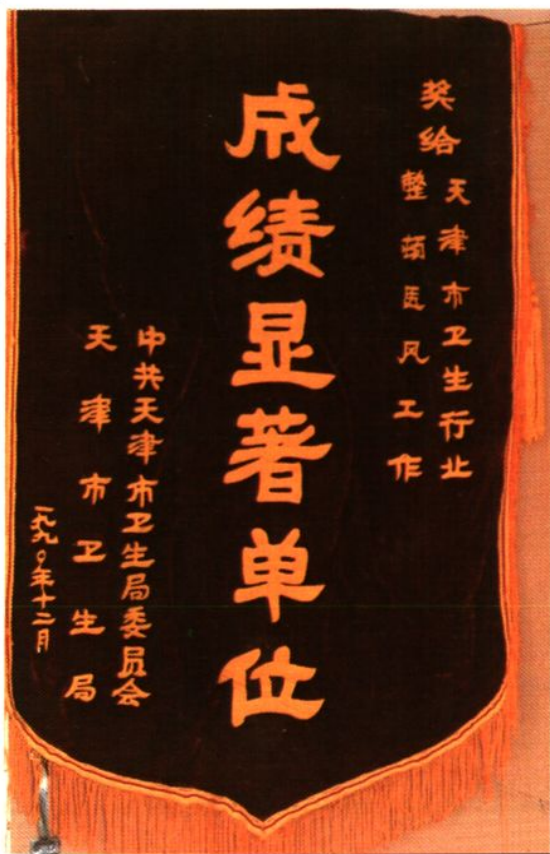 奖给天津市卫生行业
整顿医风工作
成绩显著单位
中共天津市卫生局委员会
天津市卫生局
一九九〇年十二月